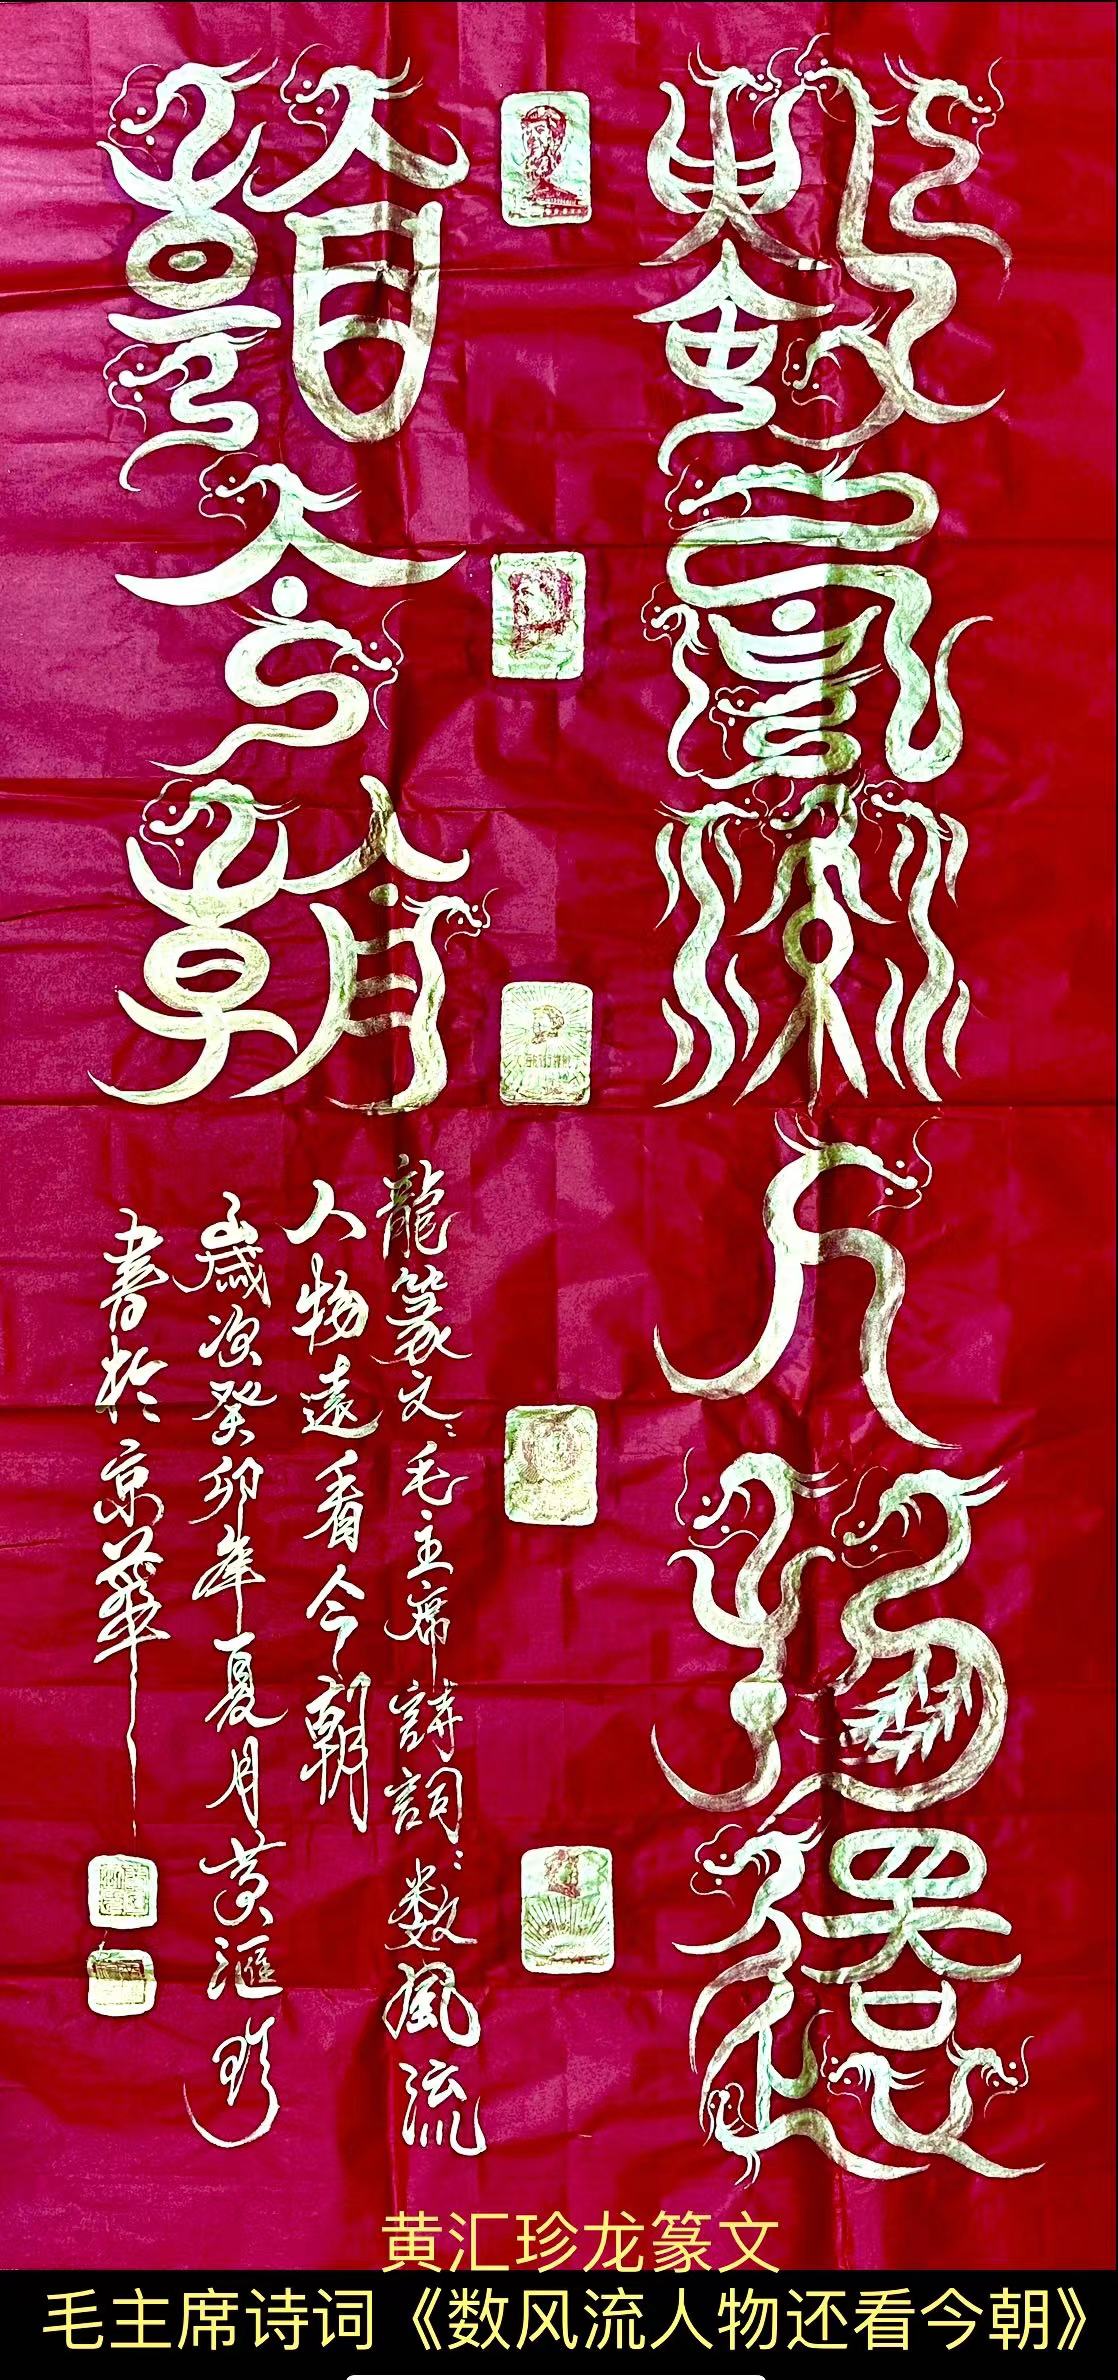 數風流人物還
看今朝
龍篆文：毛主席詩詞：数風流
人物還看今朝
歲次癸卯年夏月黄滙珍
書於京華
黄汇珍龙篆文
毛主席诗词《数风流人物还看今朝》